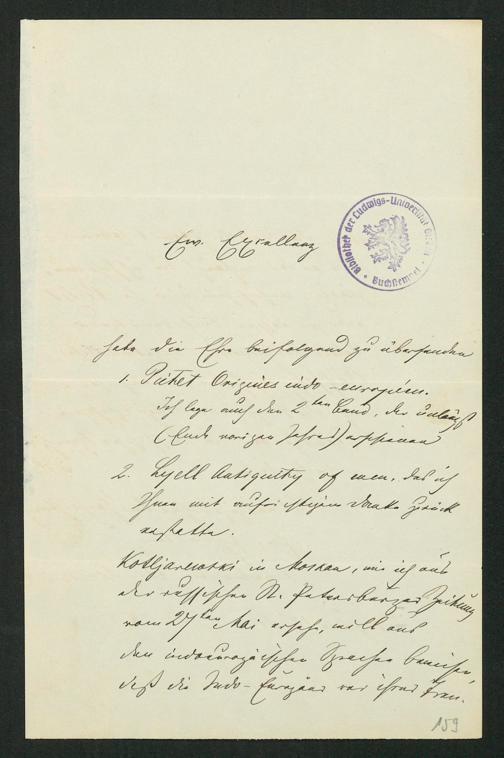 Ew. Excellenz
Bibliothek der Ludwigs-Universität Giessen
Buchstempel
habe die Ehre beifolgend zu übersenden
1. Pictet Origines indo-européen.
Ich lege auch den 2ten Band, der unlängst
(Ende vorigen Jahres) erschienen
2. Lyell Antiquity of men, das ich
Ihnen mit aufrichtigem Danke zurück
erstatte.
Kotljarewski in Moskau, wie ich aus
der russischen St. Petersburger Zeitung
vom 27ten Mai ersehe, will aus
den indoeuropäischen Sprachen beweisen,
daß die Indo-Europäer vor ihrer Tren-
159